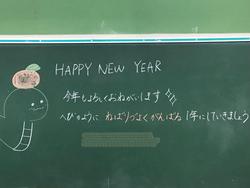 HAPPY NEW YEAR
今年もよろしくおねがいします
へびのように ねばりづよくがんばる 1年にしていきましょう